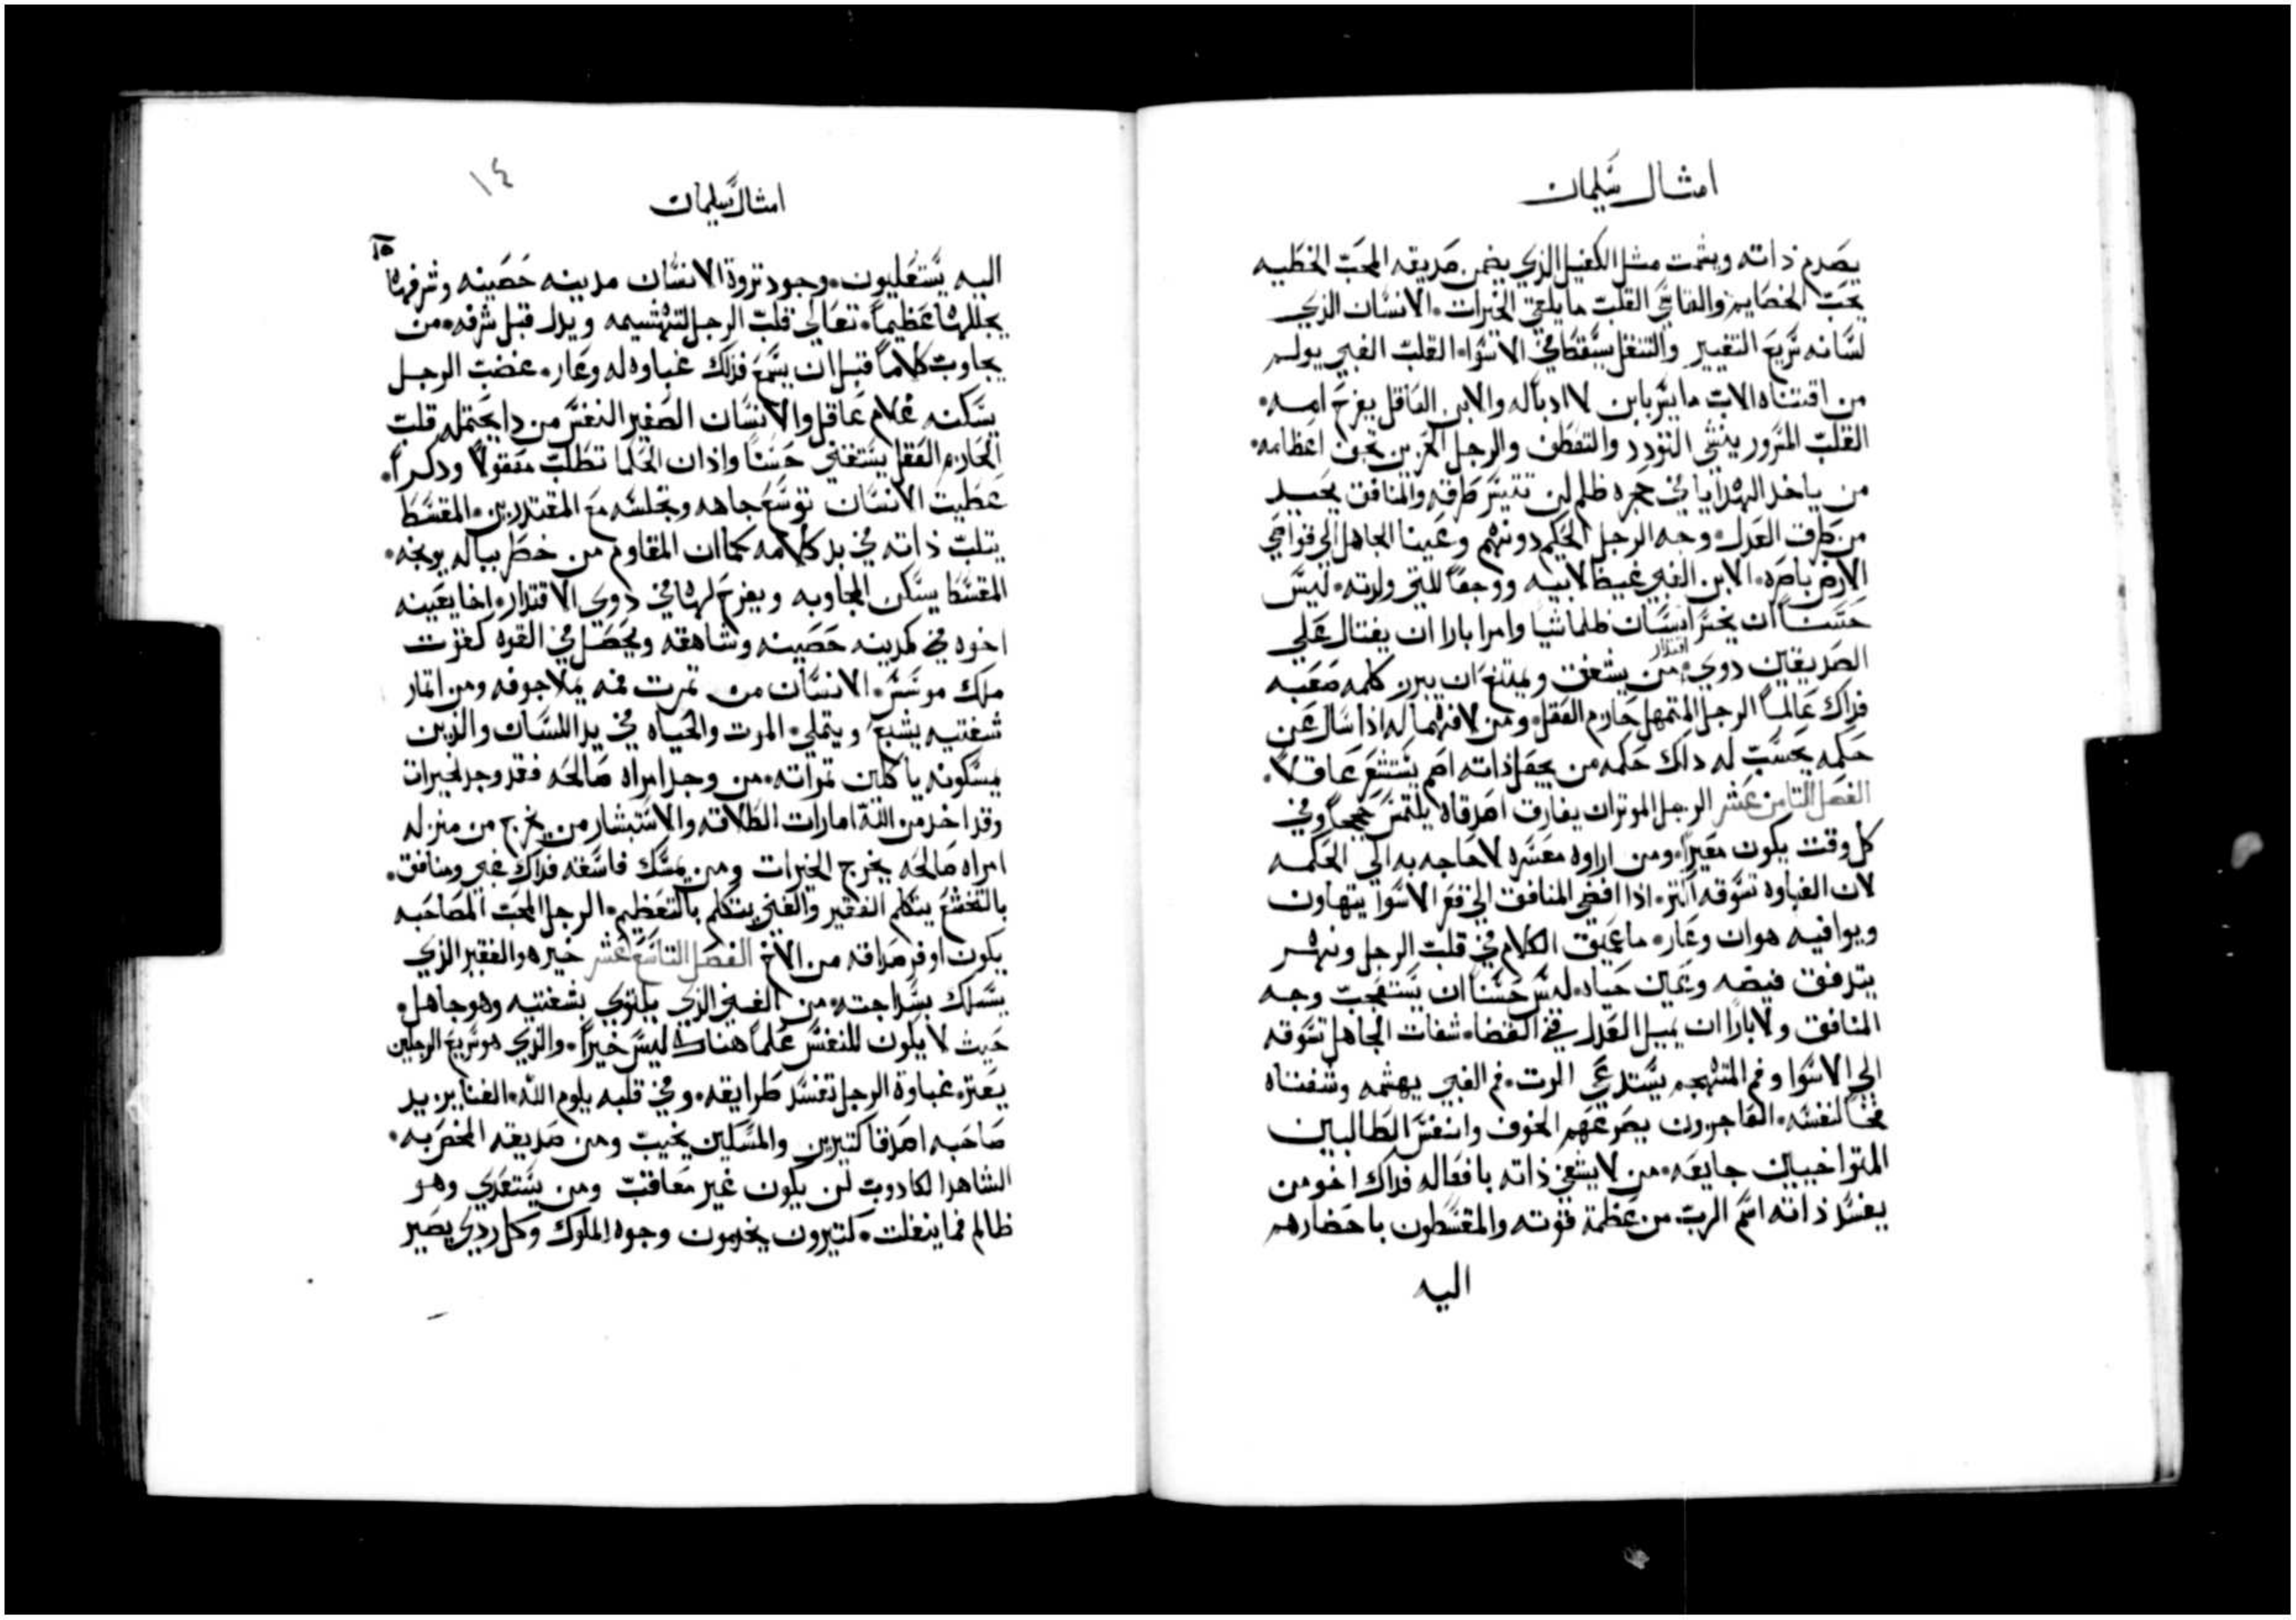 امثال سليمان
يصدم ذاته ويشمت مثل الكفيل الذي يضمن صديقه المحب الخطيه
يحب الخصايم والقاسي القلب ما يلتقي الخيرات. الانسان الذي
لسانه سريع التغيير والتنقل يسقط في الاسوا. القلب الغبي يولم
من اقتناه الاب ما يسر بابن لا ادب له والابن العاقل يفرح امه.
القلب المسرور ينشي التودد والتعطف والرجل الحزين تجف اعظامه.
من ياخد الهدايا في حجره ظلم لن تتيسر طرقه والمنافق يحيد
من طرف العدل. وجه الرجل الحكيم دو فهم وعينا الجاهل الي قواصي
الارض باصره. الابن الغبي غيظ لابيه ووجعا للتي ولدته. ليس
حسنا ان يخسر انسان ظلما شيا وامرا بارا ان يغتال علي
الصديقين دوي اقتدار. من يشفق ويمتنع ان يبرز كلمه صعبه
فداك عالما الرجل المتمهل حازم العقل. ومن لا فهما له اذا سال عن
حكمه يحسب له داك حكمه من يجعل ذاته اصم يستشعر عاقلا.
الفصل التامن عشر الرجل الموتر ان يفارق اصدقاه يلتمس حججا وفي
كل وقت يكون معيرا. ومن اراوه معسره لا حاجه به الي الحكمه
لان الغباوه تسوقه اكتر. اذا افضي المنافق الي قعر الاسوا يتهاون
ويوافيه هوان وعار. ما عميق الكلام في قلب الرجل ونهر
يتدفق فيضه وعين حياه. ليس حسنا ان يستعجب وجه
المنافق ولا بارا ان يميل العدل في القضا. شفات الجاهل تسوقه
الي الاسوا وفم المتهجم يستدعي الموت. فم الغبي يهشمه وشفتاه
فخا لنفسه. الفاجرون يصرعهم الخوف وانفس الطالبين
المتواخيين جايعه. من لا يشفي ذاته بافعاله فداك اخو من
يفسد ذاته اسم الرب. من عظمة قوته والمقسطون باحضارهم
اليه
١٤
امثال سليمان
١٥
اليه يستعليون. وجود تروة الانسان مدينه حصينه وشرفها
يجللها عظيما. تعالي قلب الرجل لتهشيمه ويدل قبل شرفه. من
يجاوب كلاما قبل ان يسمع فداك غباوه له وعار. غضب الرجل
يسكنه غلام عاقل والانسان الصغير النفس من دا يحتمله قلب
الحازم العقل يستغني حسنا واذان الحكما تطلب معقولا ودكرا.
عطيت الانسان توسع جاهه وتجلسه مع المقتدرين. المقسط
يتلب ذاته في بد كلامه كما ان المقاوم من خطر بباله يوبخه.
المقسط يسكن المجاوبه ويفرج لها في دوي الاقتدار. اخا يعينه
اخوه في كمدينه حصينه وشاهقه ويحصل في القوه كعزت
ملك موسس. الانسان من تمرت فمه يملا جوفه ومن اتمار
شفتيه يشبع ويتملي. الموت والحياه في يد اللسان والذين
يمسكونه ياكلين تمراته. من وجد امراه صالحه فقد وجد لخيرات
وقد اخد من اللة امارات الطلاقه والاستبشار من يخرج من منزله
امراه صالحه يخرج الخيرات ومن يمسك فاسقه فداك غبي ومنافق.
بالتخشع يتكلم الفقير والغني يتكلم بالتعظيم. الرجل المحب المصاحبه
يكون اوفر صداقه من الاخ الفصل التاسع عشر خير هو الفقير الذي
يسلك بسداجته. من الغني الذي يلتوي بشفتيه وهو جاهل.
حيث لا يكون للنفس علما هناك ليس خيرا. والذي هو سريع الرجلين
يعتر. غباوة الرجل تفسد طرايقه. وفي قلبه يلوم الله. الغنا يزيد
صاحبه اصدقا كتيرين والمسكين يخيب ومن صديقه المخصربه.
الشاهد الكادوب لن يكون غير معاقب ومن يستعدي وهو
ظالم فما ينفلت. كتيرون يخدمون وجوه الملوك وكل ردي يصير